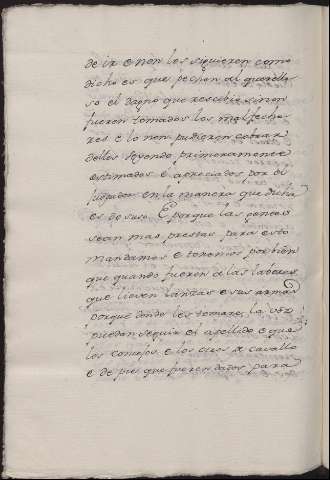 de ir e non los siguieren como
dicho es que pechen al querello
so el dagno que rescibio si non
fueren tomados los malfecho
res e lo non pudieren cobrar
dellos seyendo primeramente
estimados e apreciados por el
jusgador en la manera que dicha
es de suso. E porque las gentes
sean mas prestas para esto
mandamos e tenemos por bien
que quando fueren a las labores
que lieven lanzas e sus armas
porque donde les tomare la voz
puedan seguir el apellido e que
los consejos e los otros de cavallo
e de pie que fueren dados para